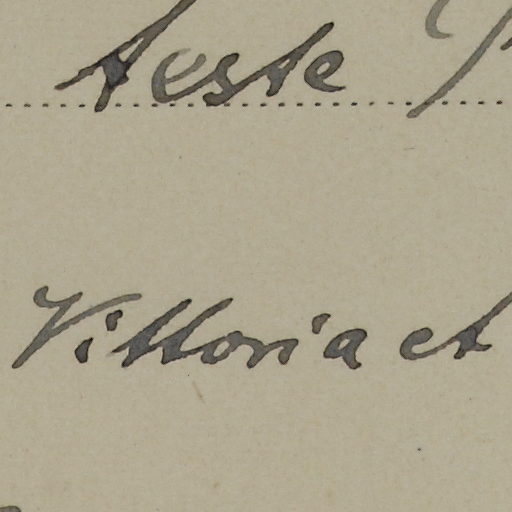 teste
Vittoria et